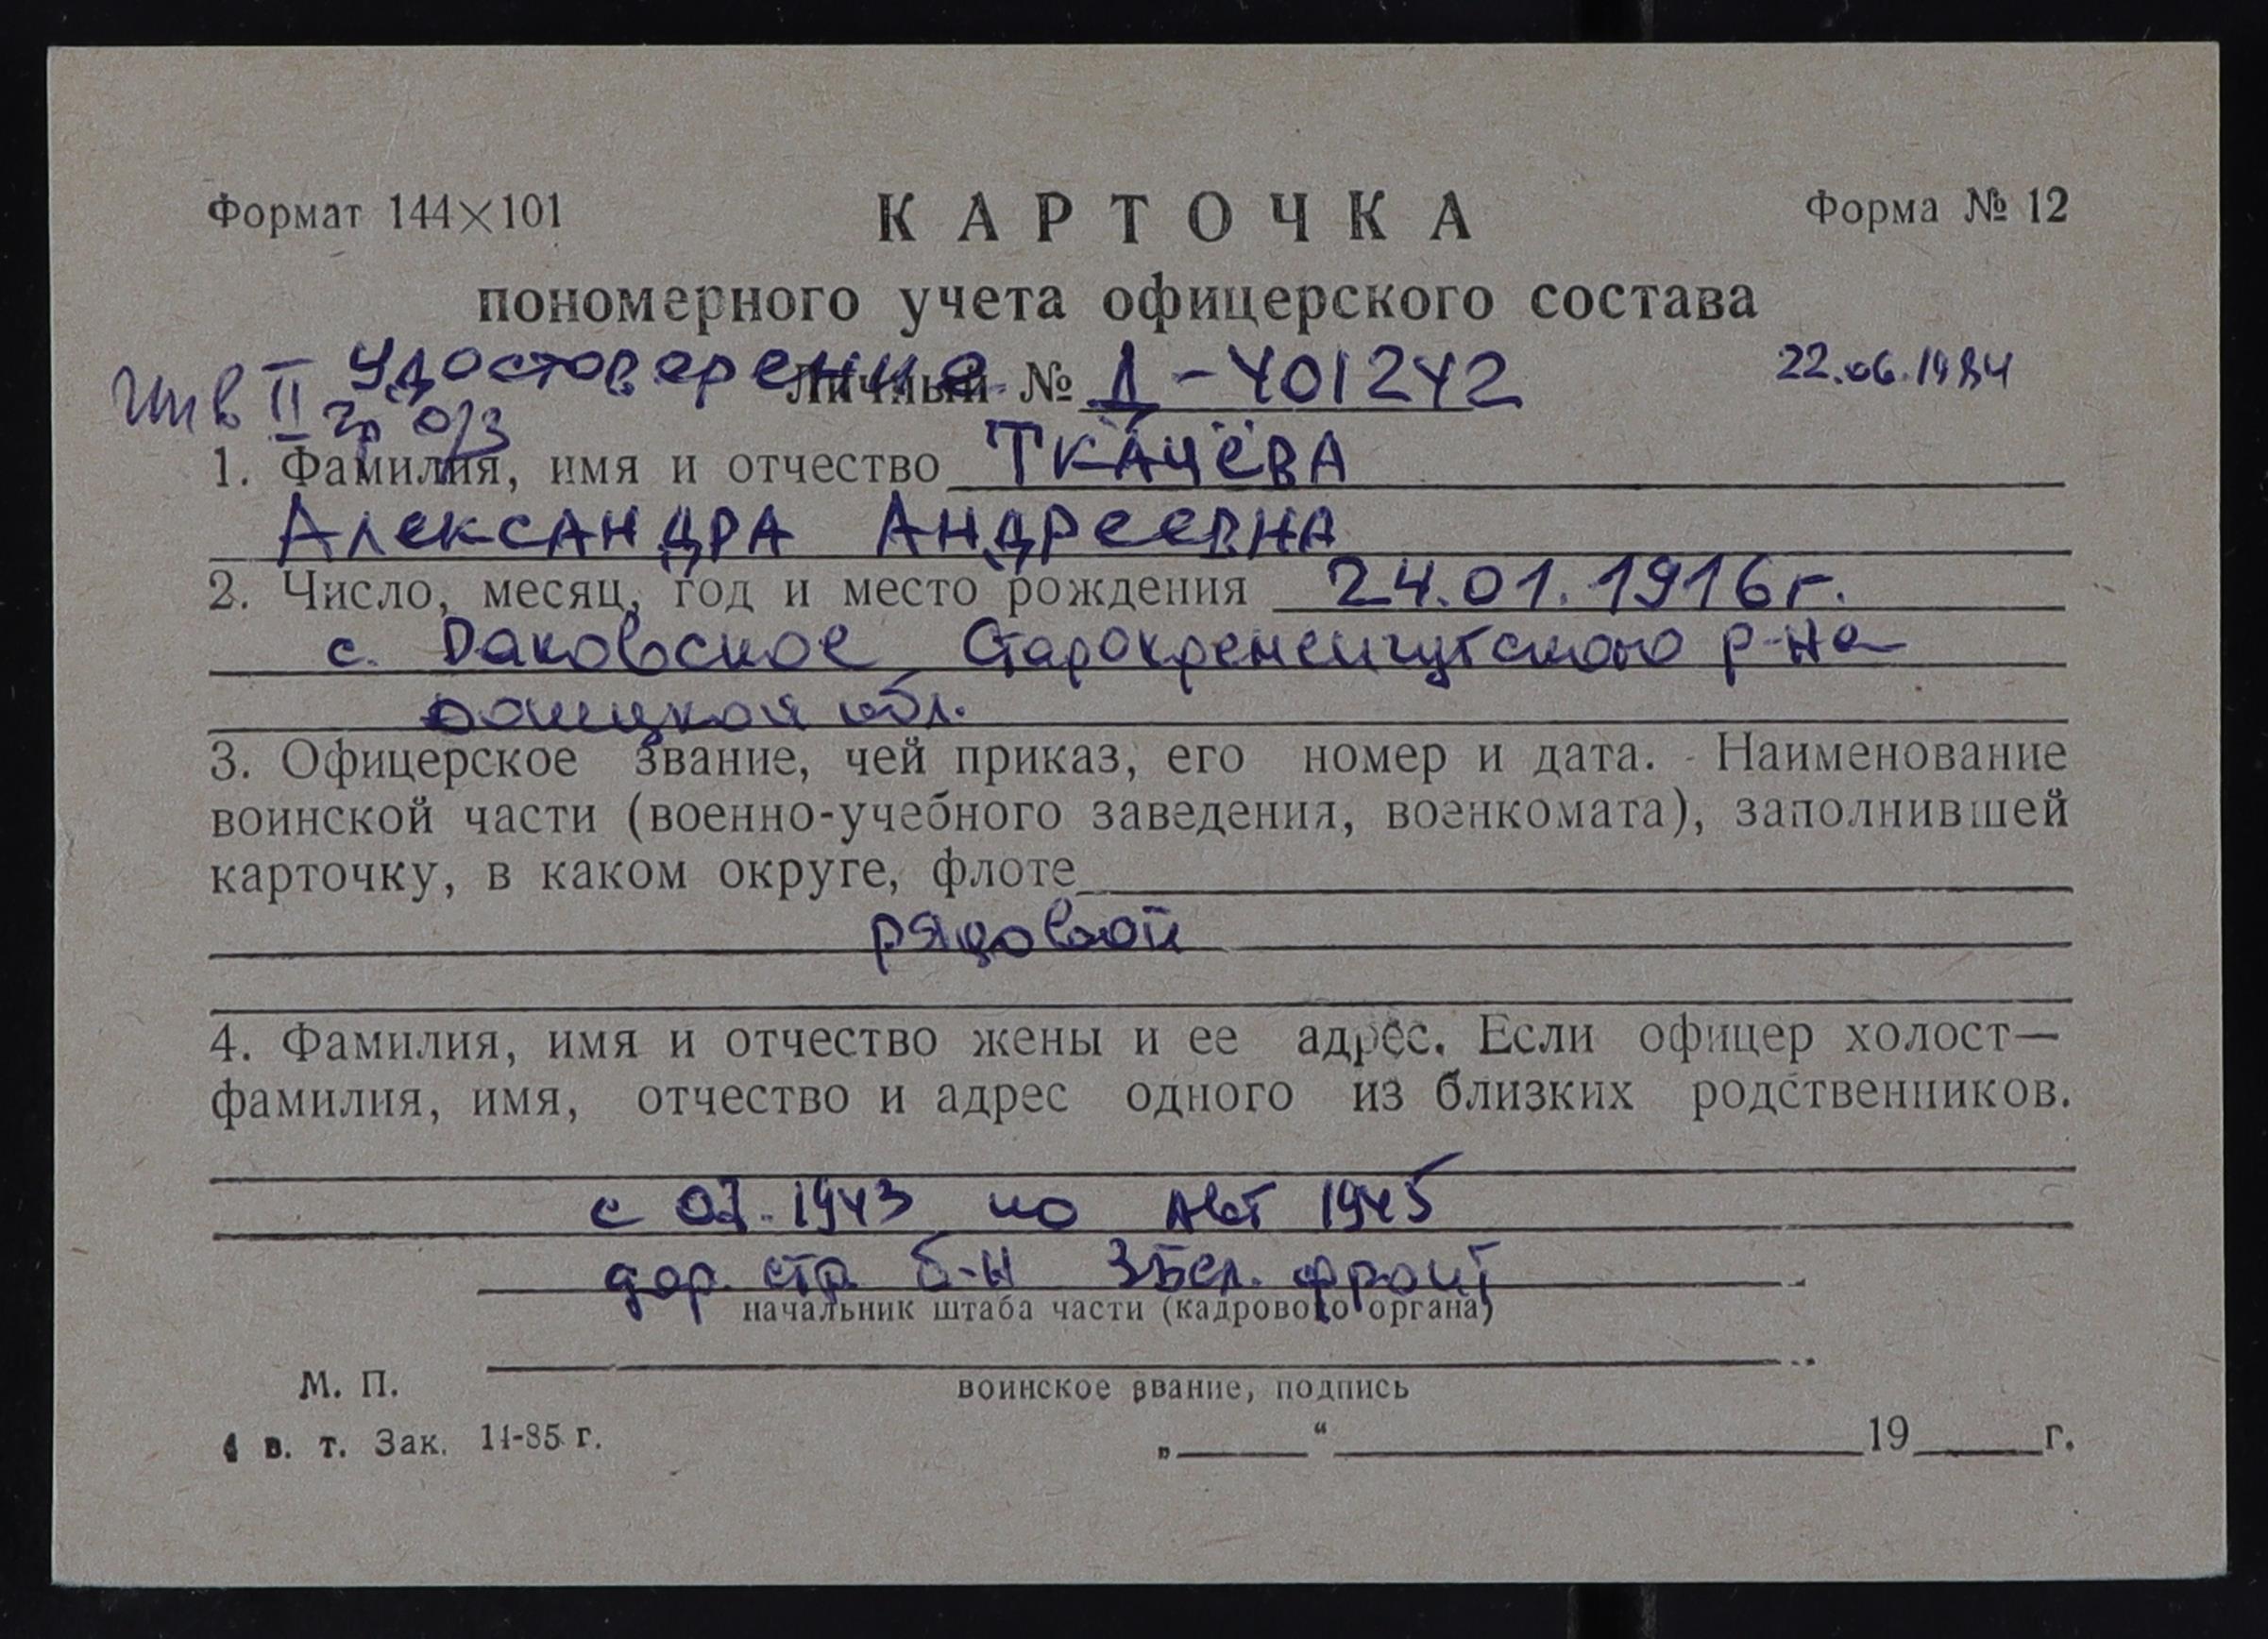 Формат 144×101 КАРТОЧКА Форма № 12
пономерного учета офицерского состава
Удостоверение Личный № Д-401242 22.06.1984
Инв II гр о/з
1. Фамилия, имя и отчество ТКАЧЁВА
АЛЕКСАНДРА АНДРЕЕВНА
2. Число, месяц, год и место рождения 24.01.1916 г.
с. Даковское р-на
обл.
3. Офицерское звание, чей приказ, его номер и дата. Наименование
воинской части (военно-учебного заведения, военкомата), заполнившей
карточку, в каком округе, флоте
рядовой
4. Фамилия, имя и отчество жены и ее адрес. Если офицер холост—
фамилия, имя, отчество и адрес одного из близких родственников.
с 07.1943 по Авг 1945
дор. стр. б-н 3 Бел. фронт
начальник штаба части (кадрового органа)
М. П.
воинское звание, подпись
в. т. Зак. 14-85 г. „ “ 19 г.